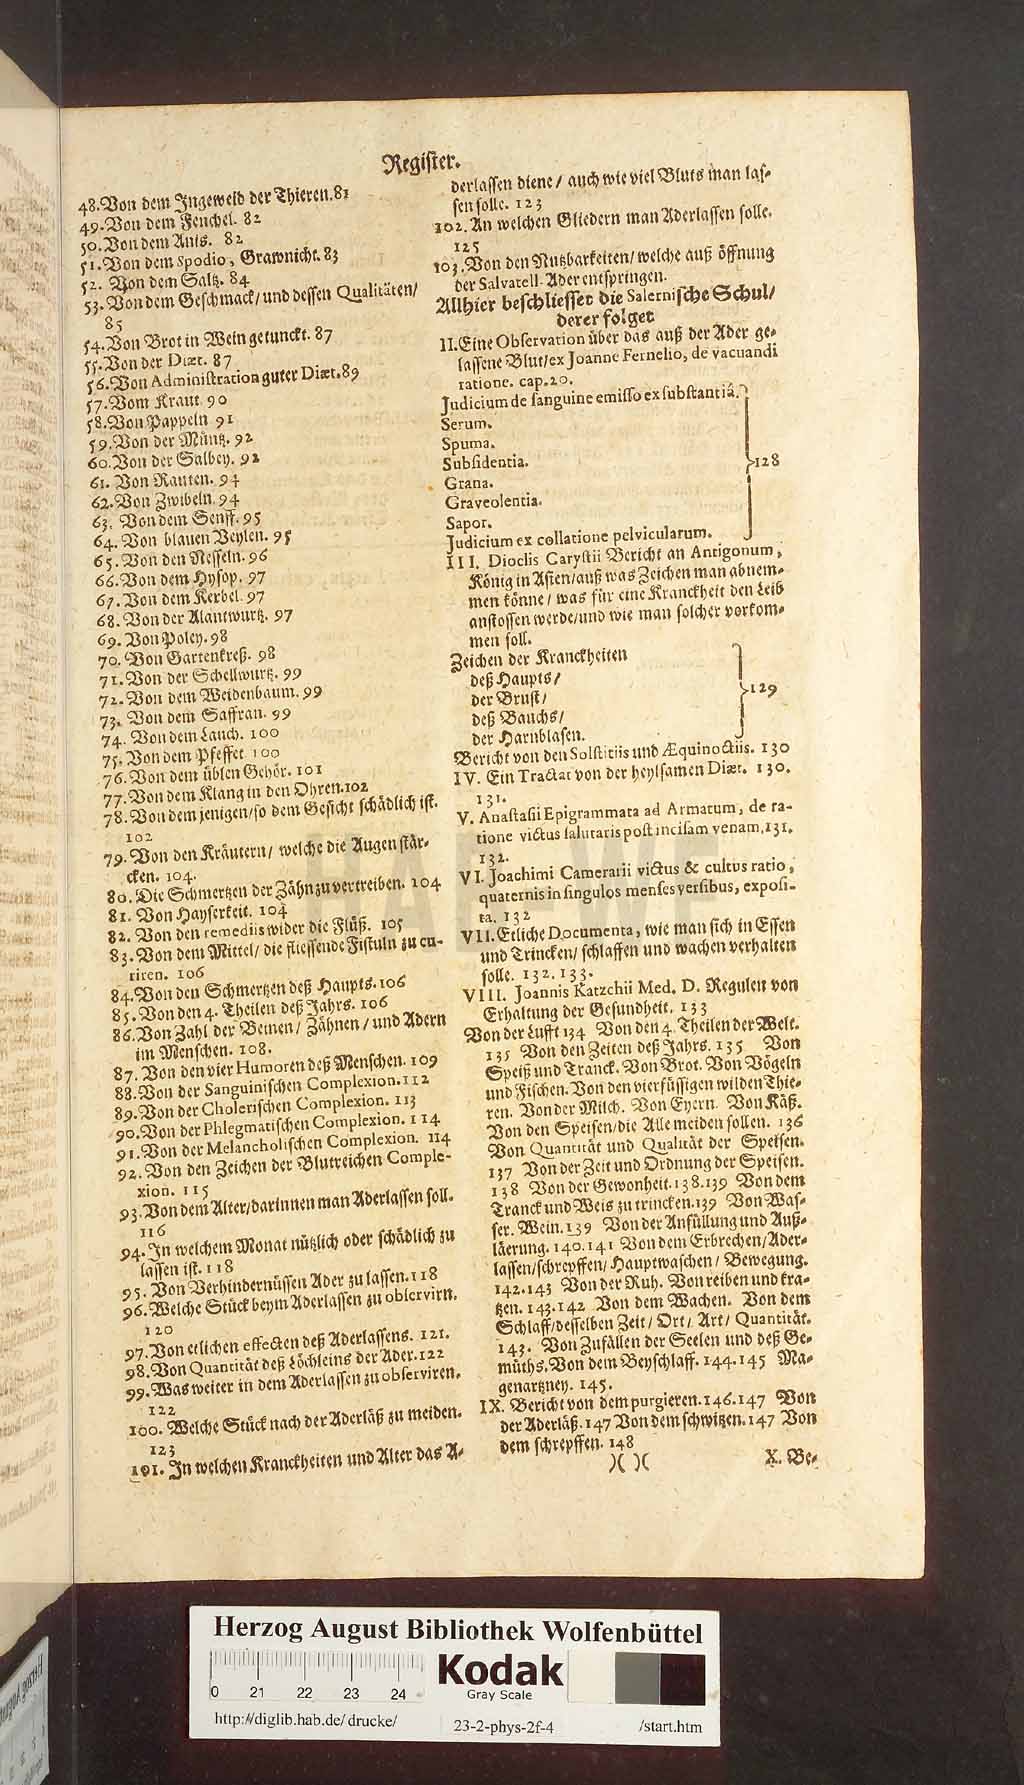 Register.
48. Von dem Ingeweid der Thieren. 81
49. Von dem Fenchel. 82
50. Von dem Anis. 82
51. Von dem Spodio, Grawnicht. 83
52. Von dem Saltz. 84
53. Von dem Geschmack / und dessen Qualitäten /
85
54. Von Brot in Wein getunckt. 87
55. Von der Diæt. 87
56. Von Administration guter Diæt. 89
57. Vom Kraut. 90
58. Von Pappeln 91
59. Von der Müntz. 92
60. Von der Salbey. 92
61. Von Rauten. 94
62. Von Zwibeln. 94
63. Von dem Senff. 95
64. Von blauen Veylen. 95
65. Von den Nesseln. 96
66. Von dem Hysop. 97
67. Von dem Kerbel. 97
68. Von der Alantwurtz. 97
69. Von Poley. 98
70. Von Gartenkreß. 98
71. Von der Schellwurtz. 99
72. Von dem Weidenbaum. 99
73. Von dem Saffran. 99
74. Von dem Lauch. 100
75. Von dem Pfeffer. 100
76. Von dem üblen Gehör. 101
77. Von dem Klang in den Ohren. 102
78. Von dem jenigen / so dem Gesicht schädlich ist.
102
79. Von den Kräutern / welche die Augen stär-
cken. 104.
80. Die Schmertzen der Zähn zu vertreiben. 104
81. Von Hayserkeit. 104
82. Von den remediis wider die Flüß. 105
83. Von dem Mittel / die fliessende Fistuln zu cu-
riren. 106
84. Von den Schmertzen deß Haupts. 106
85. Von den 4. Theilen deß Jahrs. 106
86. Von Zahl der Beinen / Zähnen / und Adern
im Menschen. 108.
87. Von den vier Humoren deß Menschen. 109
88. Von der Sanguinischen Complexion. 112
89. Von der Cholerischen Complexion. 113
90. Von der Phlegmatischen Complexion. 114
91. Von der Melancholischen Complexion. 114
92. Von den Zeichen der Blutreichen Comple-
xion. 115
93. Von dem Alter / darinnen man Aderlassen soll.
116
94. In welchem Monat nützlich oder schädlich zu
lassen ist. 118
95. Von Verhindernüssen Ader zu lassen. 118
96. Welche Stück beym Aderlassen zu observirn.
120
97. Von etlichen effecten deß Aderlassens. 121.
98. Von Quantität deß Löchleins der Ader. 122
99. Was weiter in dem Aderlassen zu observiren.
122
100. Welche Stück nach der Aderläß zu meiden.
123
101. In welchen Kranckheiten und Alter das A-
derlassen diene / auch wie viel Bluts man las-
sen solle. 123
102. An welchen Gliedern man Aderlassen solle.
125
103. Von den Nutzbarkeiten / welche auß öffnung
der Salvatell-Ader entspringen.
Allhier beschliesset die Salernische Schul /
derer folget
II. Eine Observation über das auß der Ader ge-
lassene Blut / ex Joanne Fernelio, de vacuandi
ratione. cap. 20.
Judicium de sanguine emisso ex substantiâ.
Serum.
Spuma.
Subsidentia.
128
Grana.
Graveolentia.
Sapor.
Judicium ex collatione pelvicularum.
III. Dioclis Carystii Bericht an Antigonum,
König in Asien / auß was Zeichen man abnem-
men könne / was für eine Kranckheit den Leib
anstossen werde / und wie man solcher vorkom-
men soll.
Zeichen der Kranckheiten
deß Haupts /
der Brust /
129
deß Bauchs /
der Harnblasen.
Bericht von den Solstitiis und Æquinoctiis. 130
IV. Ein Tractat von der heylsamen Diæt. 130.
131.
V. Anastasii Epigrammata ad Armatum, de ra-
tione victus salutaris post incisam venam. 131.
132.
VI. Joachimi Camerarii victus & cultus ratio,
quaternis in singulos menses versibus, exposi-
ta. 132
VII. Etliche Documenta, wie man sich in Essen
und Trincken / schlaffen und wachen verhalten
solle. 132. 133.
VIII. Joannis Katzchii Med. D. Regulen von
Erhaltung der Gesundheit. 133
Von der Lufft 134 Von den 4. Theilen der Welt.
135 Von den Zeiten deß Jahrs. 135 Von
Speiß und Tranck. Von Brot. Von Vögeln
und Fischen. Von den vierfüssigen wilden Thie-
ren. Von der Milch. Von Eyern. Von Käß.
Von den Speisen / die Alle meiden sollen. 136
Von Quantität und Qualität der Speisen.
137 Von der Zeit und Ordnung der Speisen.
138 Von der Gewonheit. 138. 139 Von dem
Tranck und Weis zu trincken. 139 Von Was-
ser. Wein. 139 Von der Anfüllung und Auß-
läerung. 140. 141 Von dem Erbrechen / Ader-
lassen / schrepffen / Hauptwaschen / Bewegung.
142. 143 Von der Ruh. Von reiben und kra-
tzen. 143. 142 Von dem Wachen. Von dem
Schlaff / desselben Zeit / Ort / Art / Quantität.
143. Von Zufällen der Seelen und deß Ge-
müths. Von dem Beyschlaff. 144. 145 Ma-
genartzney. 145.
IX. Bericht von dem purgieren. 146. 147 Von
der Aderläß. 147 Von dem schwitzen. 147 Von
dem schrepffen. 148
)( )(
X. Be-
HAB-WF
Herzog August Bibliothek Wolfenbüttel
Kodak
Gray Scale
0 21 22 23 24
http://diglib.hab.de/drucke/ 23-2-phys-2f-4 /start.htm